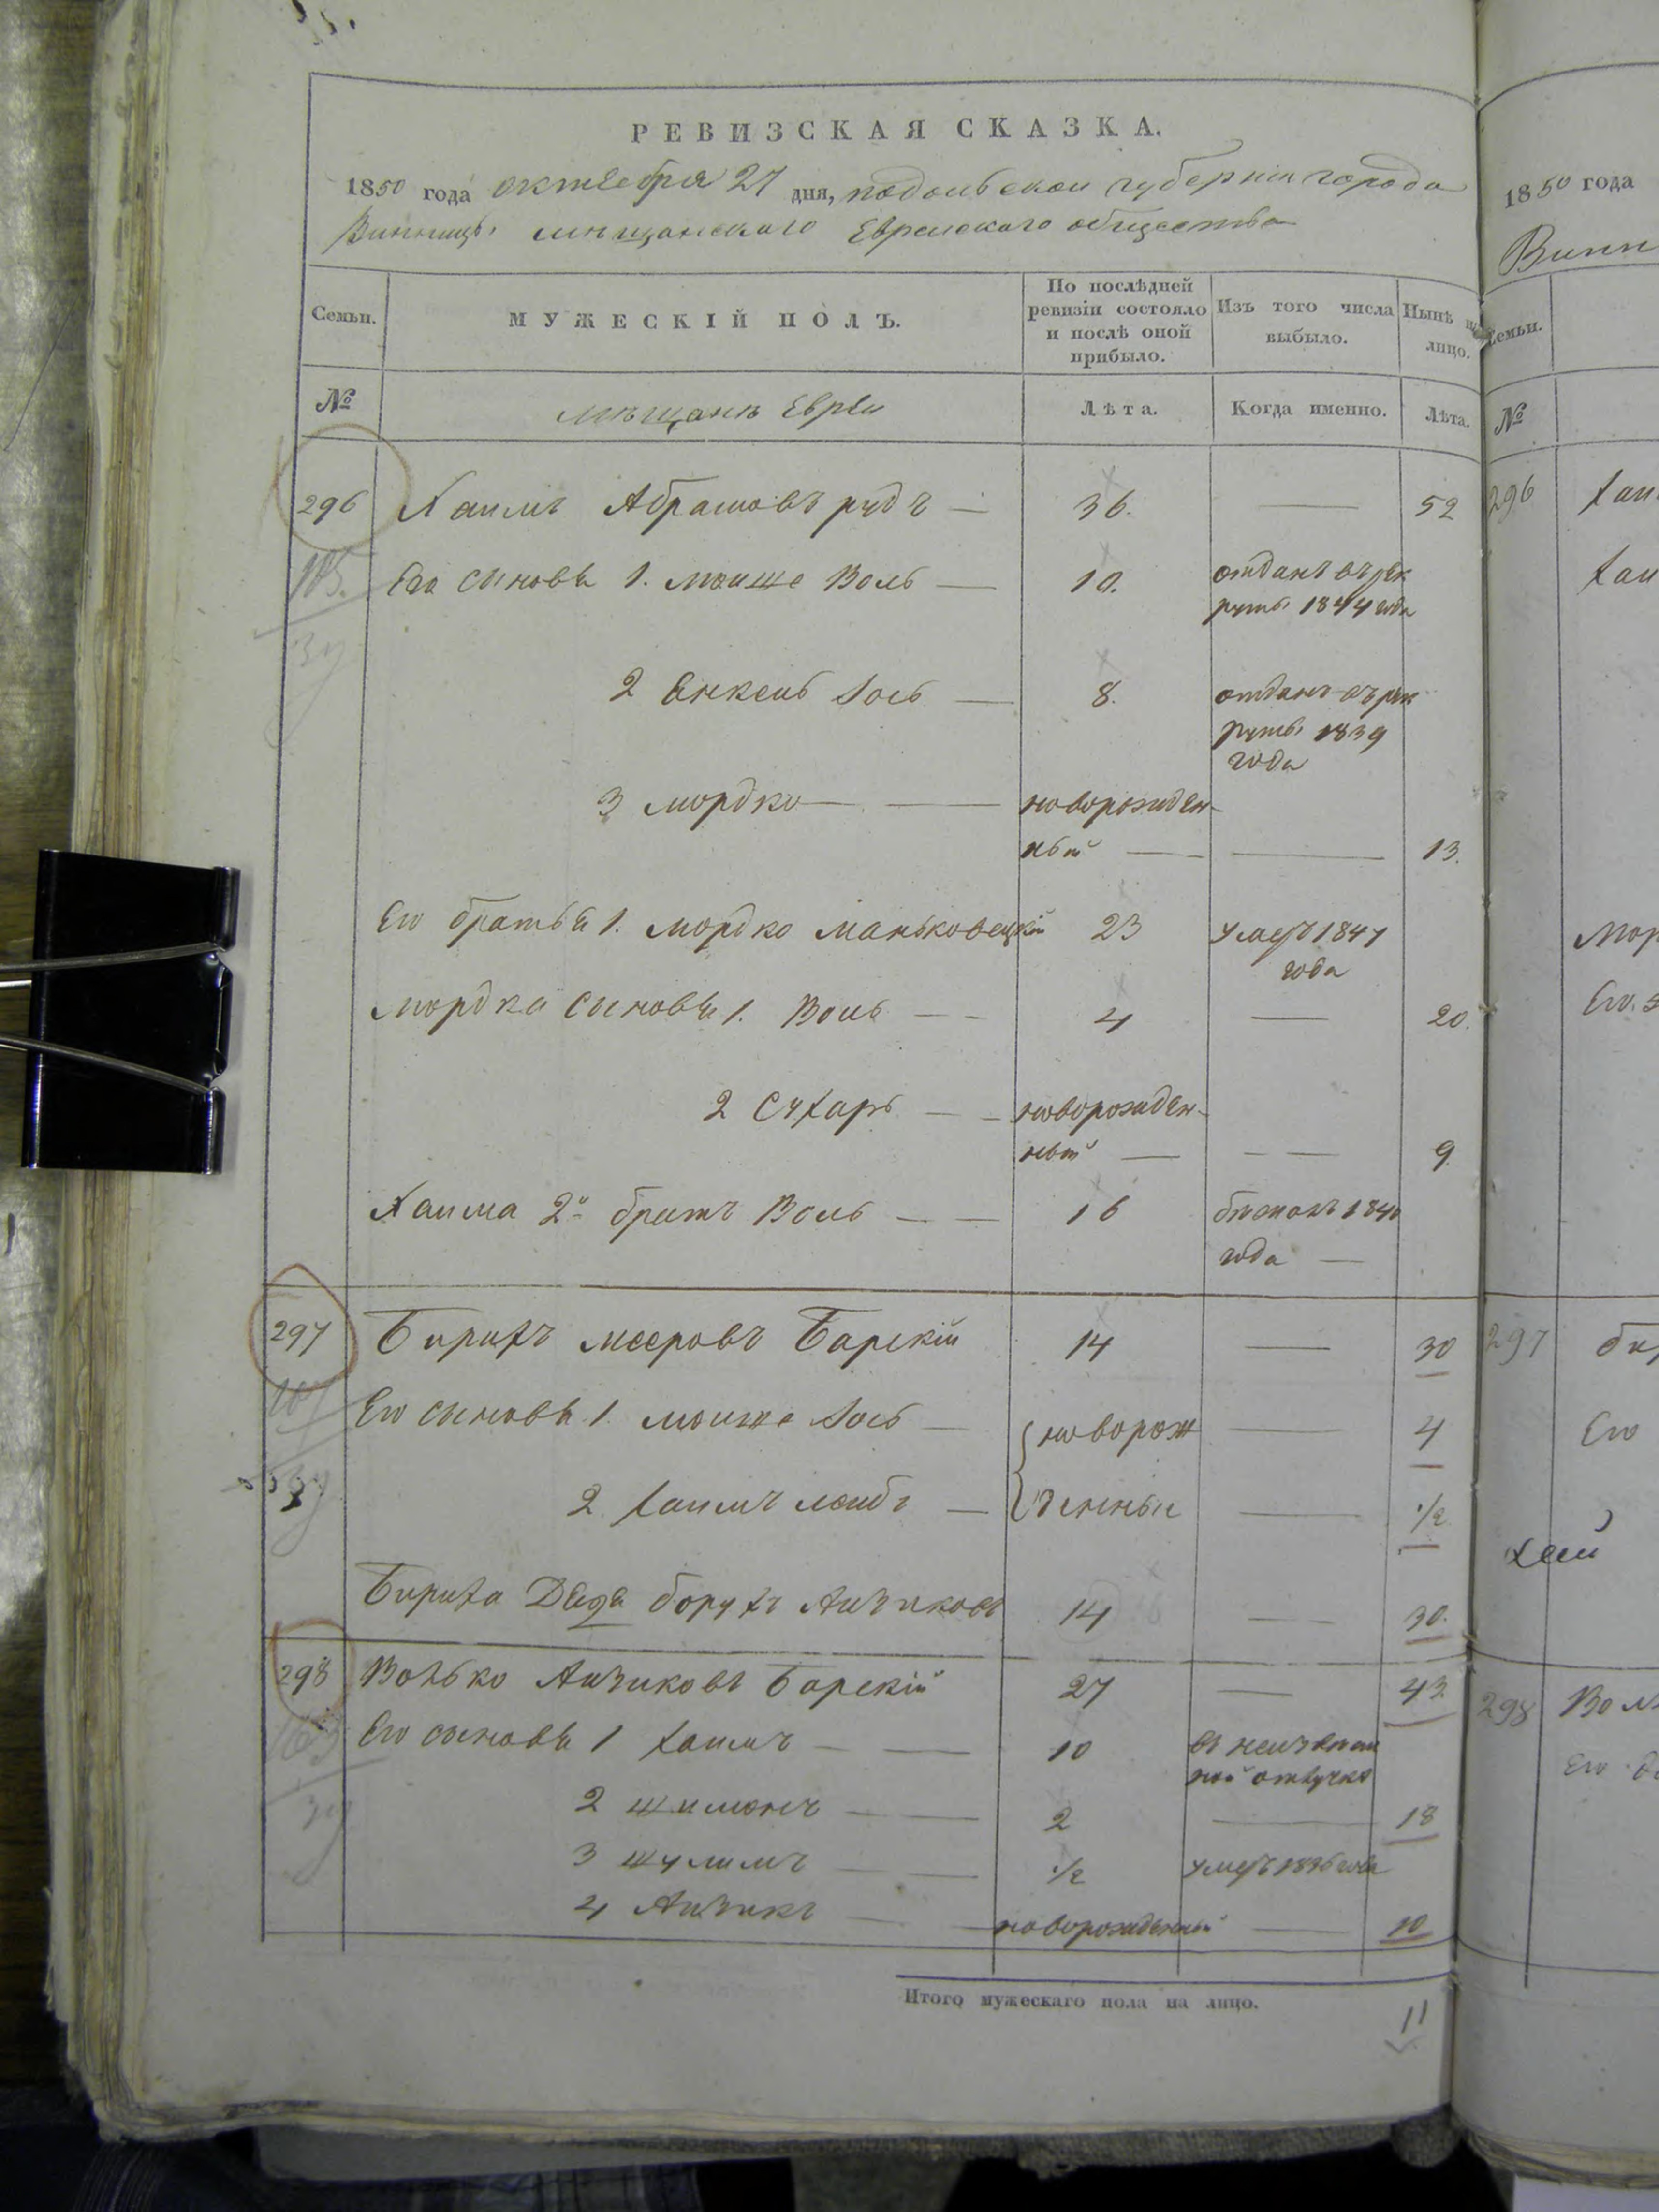 РЕВИЗСКАЯ СКАЗКА.
1850 года октября 27 дня, подольской губернии города
Винницы мещанского Еврейского общества
Семьи. МУЖЕСКІЙ ПОЛЪ. По послѣдней ревизіи состояло и послѣ оной прибыло. Изъ того числа выбыло. Нынѣ на лицо.
№ мѣщане Евреи Лѣта. Когда именно. Лѣта.
296 Хаимъ Абрамовъ рудъ — 36. — 52
Его сыновья 1. Моише Воль — 10. отданъ въ рек
руты 1844 года
2 Янкель Іось — 8. отданъ въ рек
руты 1839
года
3 мордко — — новорожден-
ный — — 13.
Его братья 1. мордко маньковецкій 23 умеръ 1847
года
мордка сыновья 1. Воль — — 4 — 20.
2 Сухаръ — — новорожден-
ный — — — 9
Хаима 2й братъ Воль — — 16 бѣжалъ 1840
года —
297 Бирихъ мееровъ Барскій 14 — 30
Его сыновья 1. моише Іось — новорож — 4
2 хаимъ лейбъ — денные — 1/2
Бириха Дядя борухъ Аизиковъ 14 — 30.
298 Волько Аизиковъ Барскій 27 — 43
Его сыновья 1 хаимъ — — 10 въ неизвѣст
ной отлучке
2 шимонъ — — 2 — 18
3 шулимъ — — 1/2 умеръ 1836 года
4 Аизикъ — — новорожденный — 10
Итого мужескаго пола на лицо. 11
1850 года
Винн
Семьи.
№
296 хаи
хаи
Мор
Его
297 бир
Его
298 Вол
Его